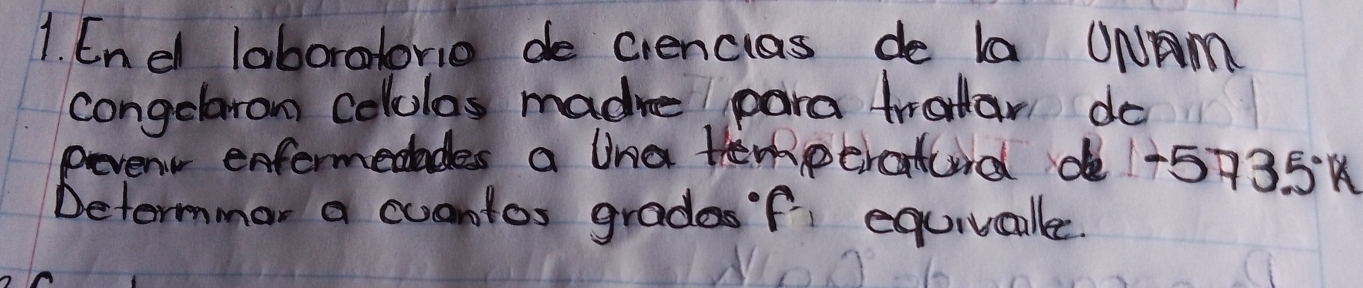 1. En el laboratorio de ciencias de la UNAM
congelaron celulas madre para tratar de
prevenir enfermedades a Una temperatura de -573.5°K
Determinar a cuantos grados °F equivalle.